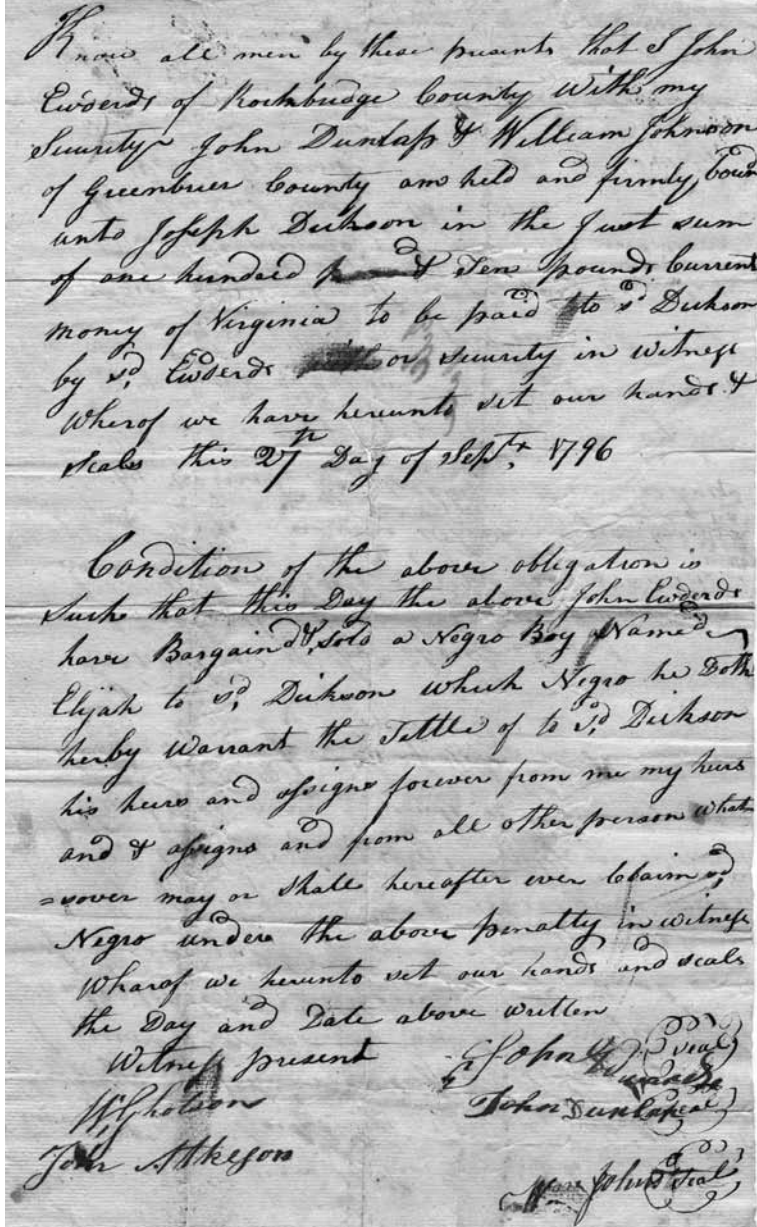 Know all men by these presents that I John
Ewderds of Rockbridge County With my
Security John Dunlap & William Johnson
of Greenbrier County am held and firmly bound
unto Joseph Dickson in the Just sum
of one hundred & Ten pounds Current
money of Virginia to be paid to sd Dickson
by sd, Ewderds or security in witness
Wherof we have hereunto set our hands &
seals this 27th Day of Septr, 1796
Condition of the above obligation is
Such that this Day the above John Ewderds
have Bargaind & sold a Negro Boy Named
Elijah to sd, Dickson which Negro he Doth
herby Warrant the Tittle of to sd, Dickson
his heirs and assigns forever from me my heirs
and & assigns and from all other person what
=sover may or shall hereafter ever Claim sd,
Negro under the above penalty in witness
Wharof we herunto set our hands and seals
the Day and Date above written
Witness present John Edwards Seal
W, Gholson John Dunlap Seal
John Atkeson
Wm Johnson Seal